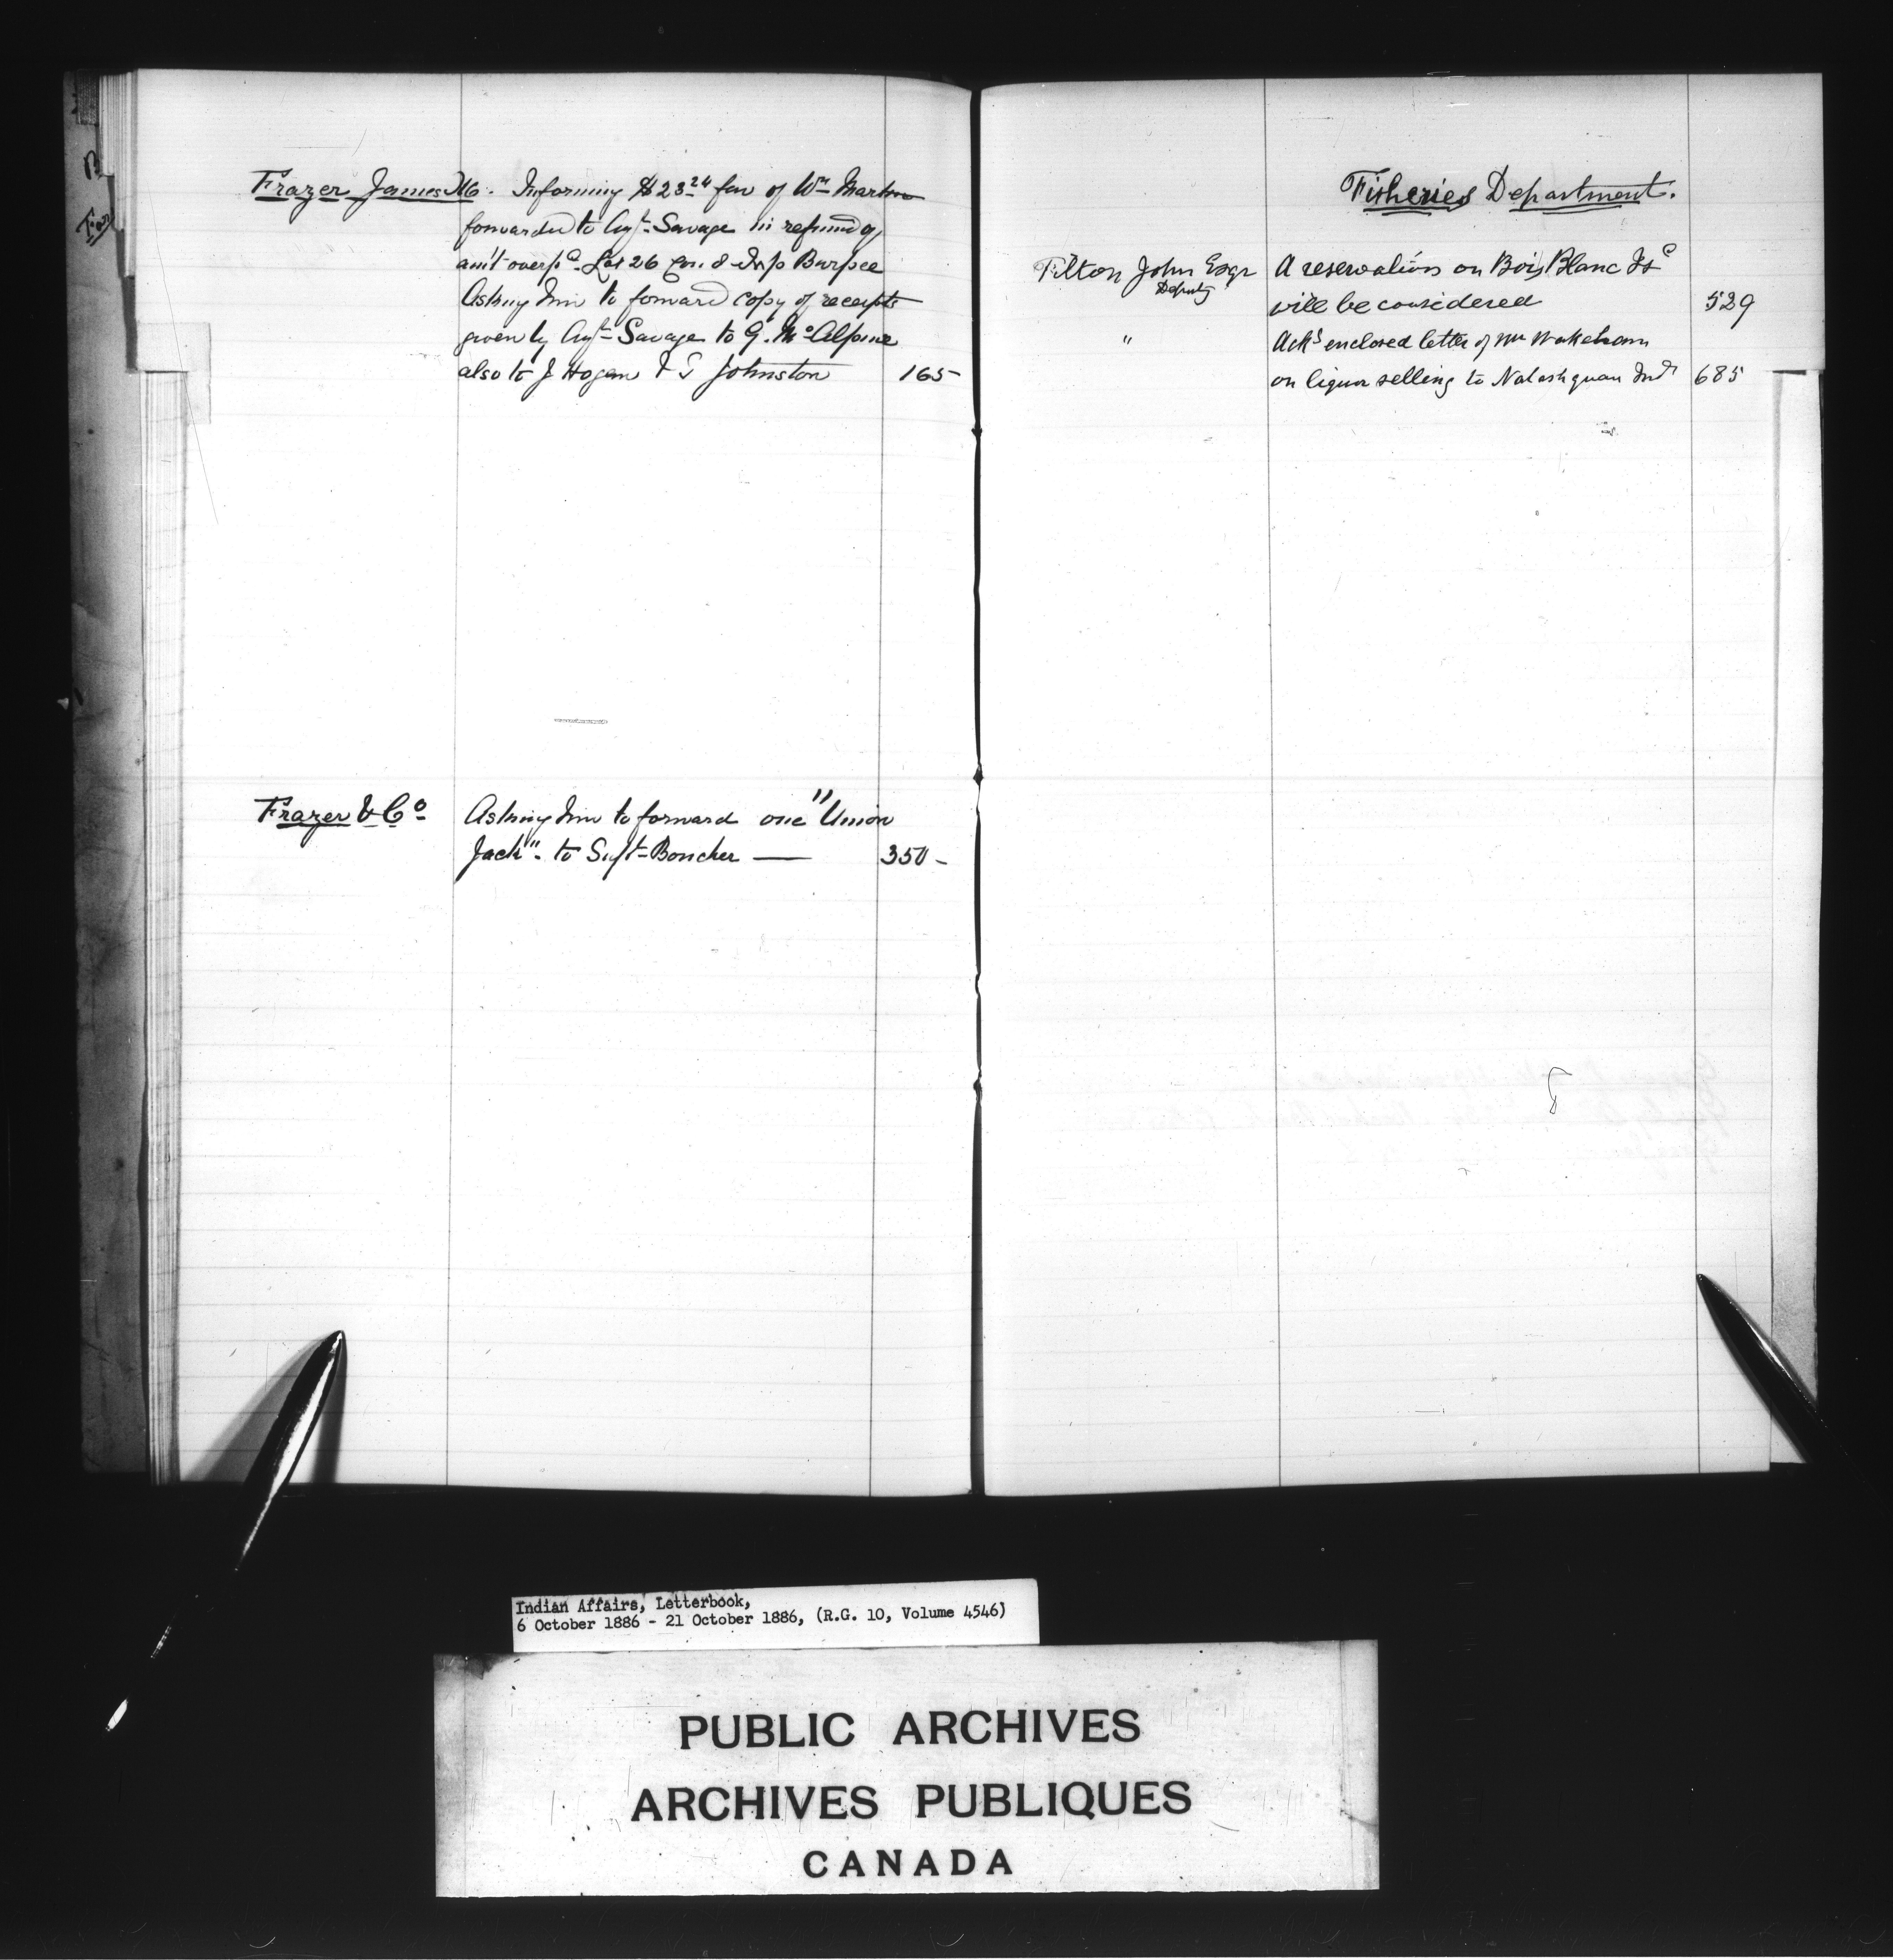 Frazer James Mc. Informing $23.24 fav of Wm Martin
forwarded to Agt Savage in refund of
am't overpd Lot 26 Con. 8 Tnp Burpee
Asking him to forward copy of receipts
given by Agt Savage to G. McAlpine
also to J Hogan & G Johnston 165
Frazer & Co Asking him to forward one "Union
Jack". to Supt Boucher — 350 -
Fisheries Department.
Tilton John Esqr A reservation on Bois Blanc Isd
Deputy
will be considered 529
" Ackd enclosed letter of Mr Wakeham
on liquor selling to Natashquan Inds 685
Indian Affairs, Letterbook,
6 October 1886 - 21 October 1886, (R.G. 10, Volume 4546)
PUBLIC ARCHIVES
ARCHIVES PUBLIQUES
CANADA